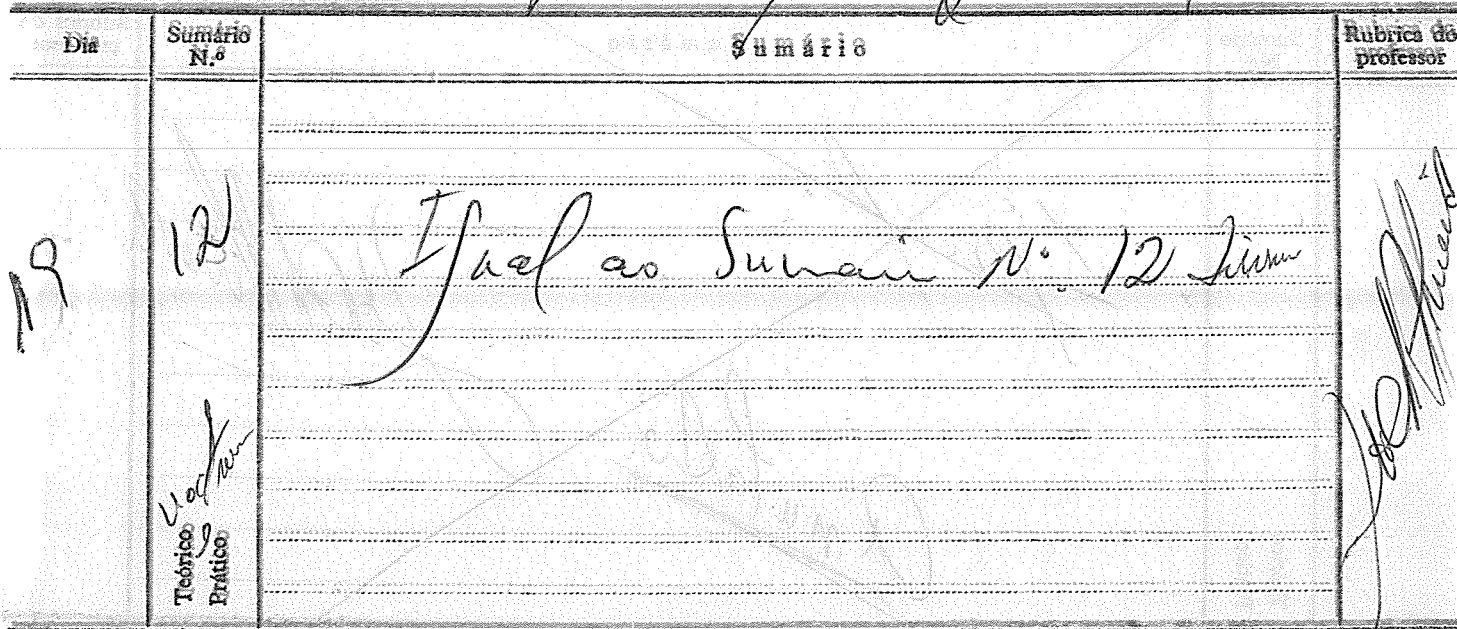 Dia
Sumário N.º
Sumário
Rubrica do professor
19
12
Igual ao Sumário Nº 12
Teórico
Prático